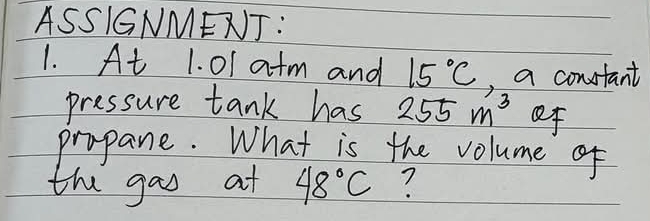 ASSIGNMENT:
1. At 1.01 atm and 15°C, a constant
pressure tank has 255 m³ of
propane. What is the volume of
the gas at 48°C ?